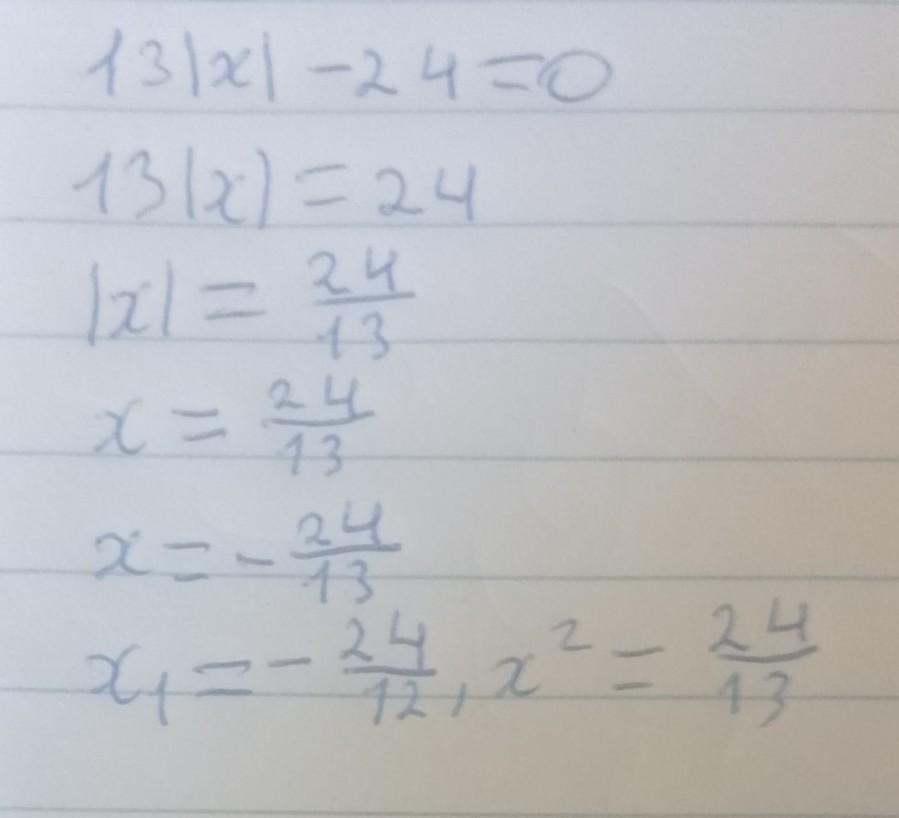 13|x| - 24 = 0
13|x| = 24
|x| = 24/13
x = 24/13
x = - 24/13
x₁ = - 24/12, x² = 24/13